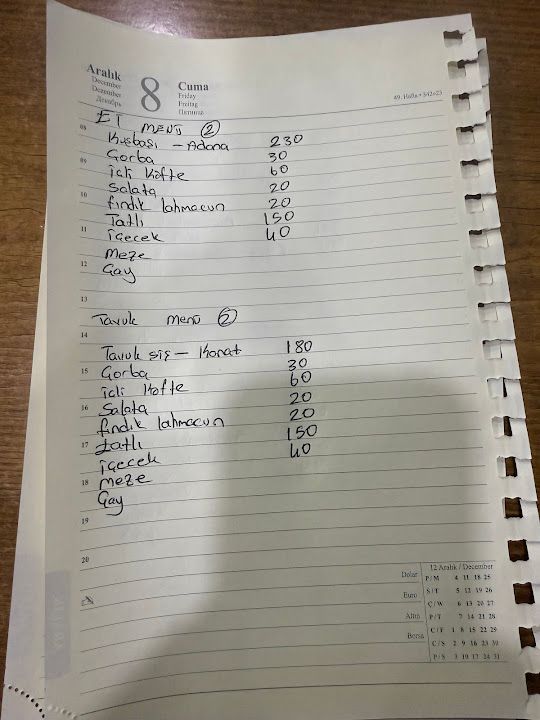 Aralık
December
Dezember
Декабрь
8
Cuma
Friday
Freitag
Пятница
49. Hafta • 342+23
08
ET MENÜ (2)
Kuşbaşı - Adana 230
09 Çorba 30
içli köfte 60
10 Salata 20
fındık lahmacun 20
11 Tatlı 150
içecek 40
12 Meze
Çay
13
Tavuk menü (2)
14
Tavuk şiş - Kanat 180
15 Çorba 30
içli köfte 60
16 Salata 20
fındık lahmacun 20
17 tatlı 150
içecek 40
18 meze
Çay
19
20
Dolar
Euro
Altın
Borsa
12 Aralık / December
P / M 4 11 18 25
S / T 5 12 19 26
Ç / W 6 13 20 27
P / T 7 14 21 28
C / F 1 8 15 22 29
C / S 2 9 16 23 30
P / S 3 10 17 24 31